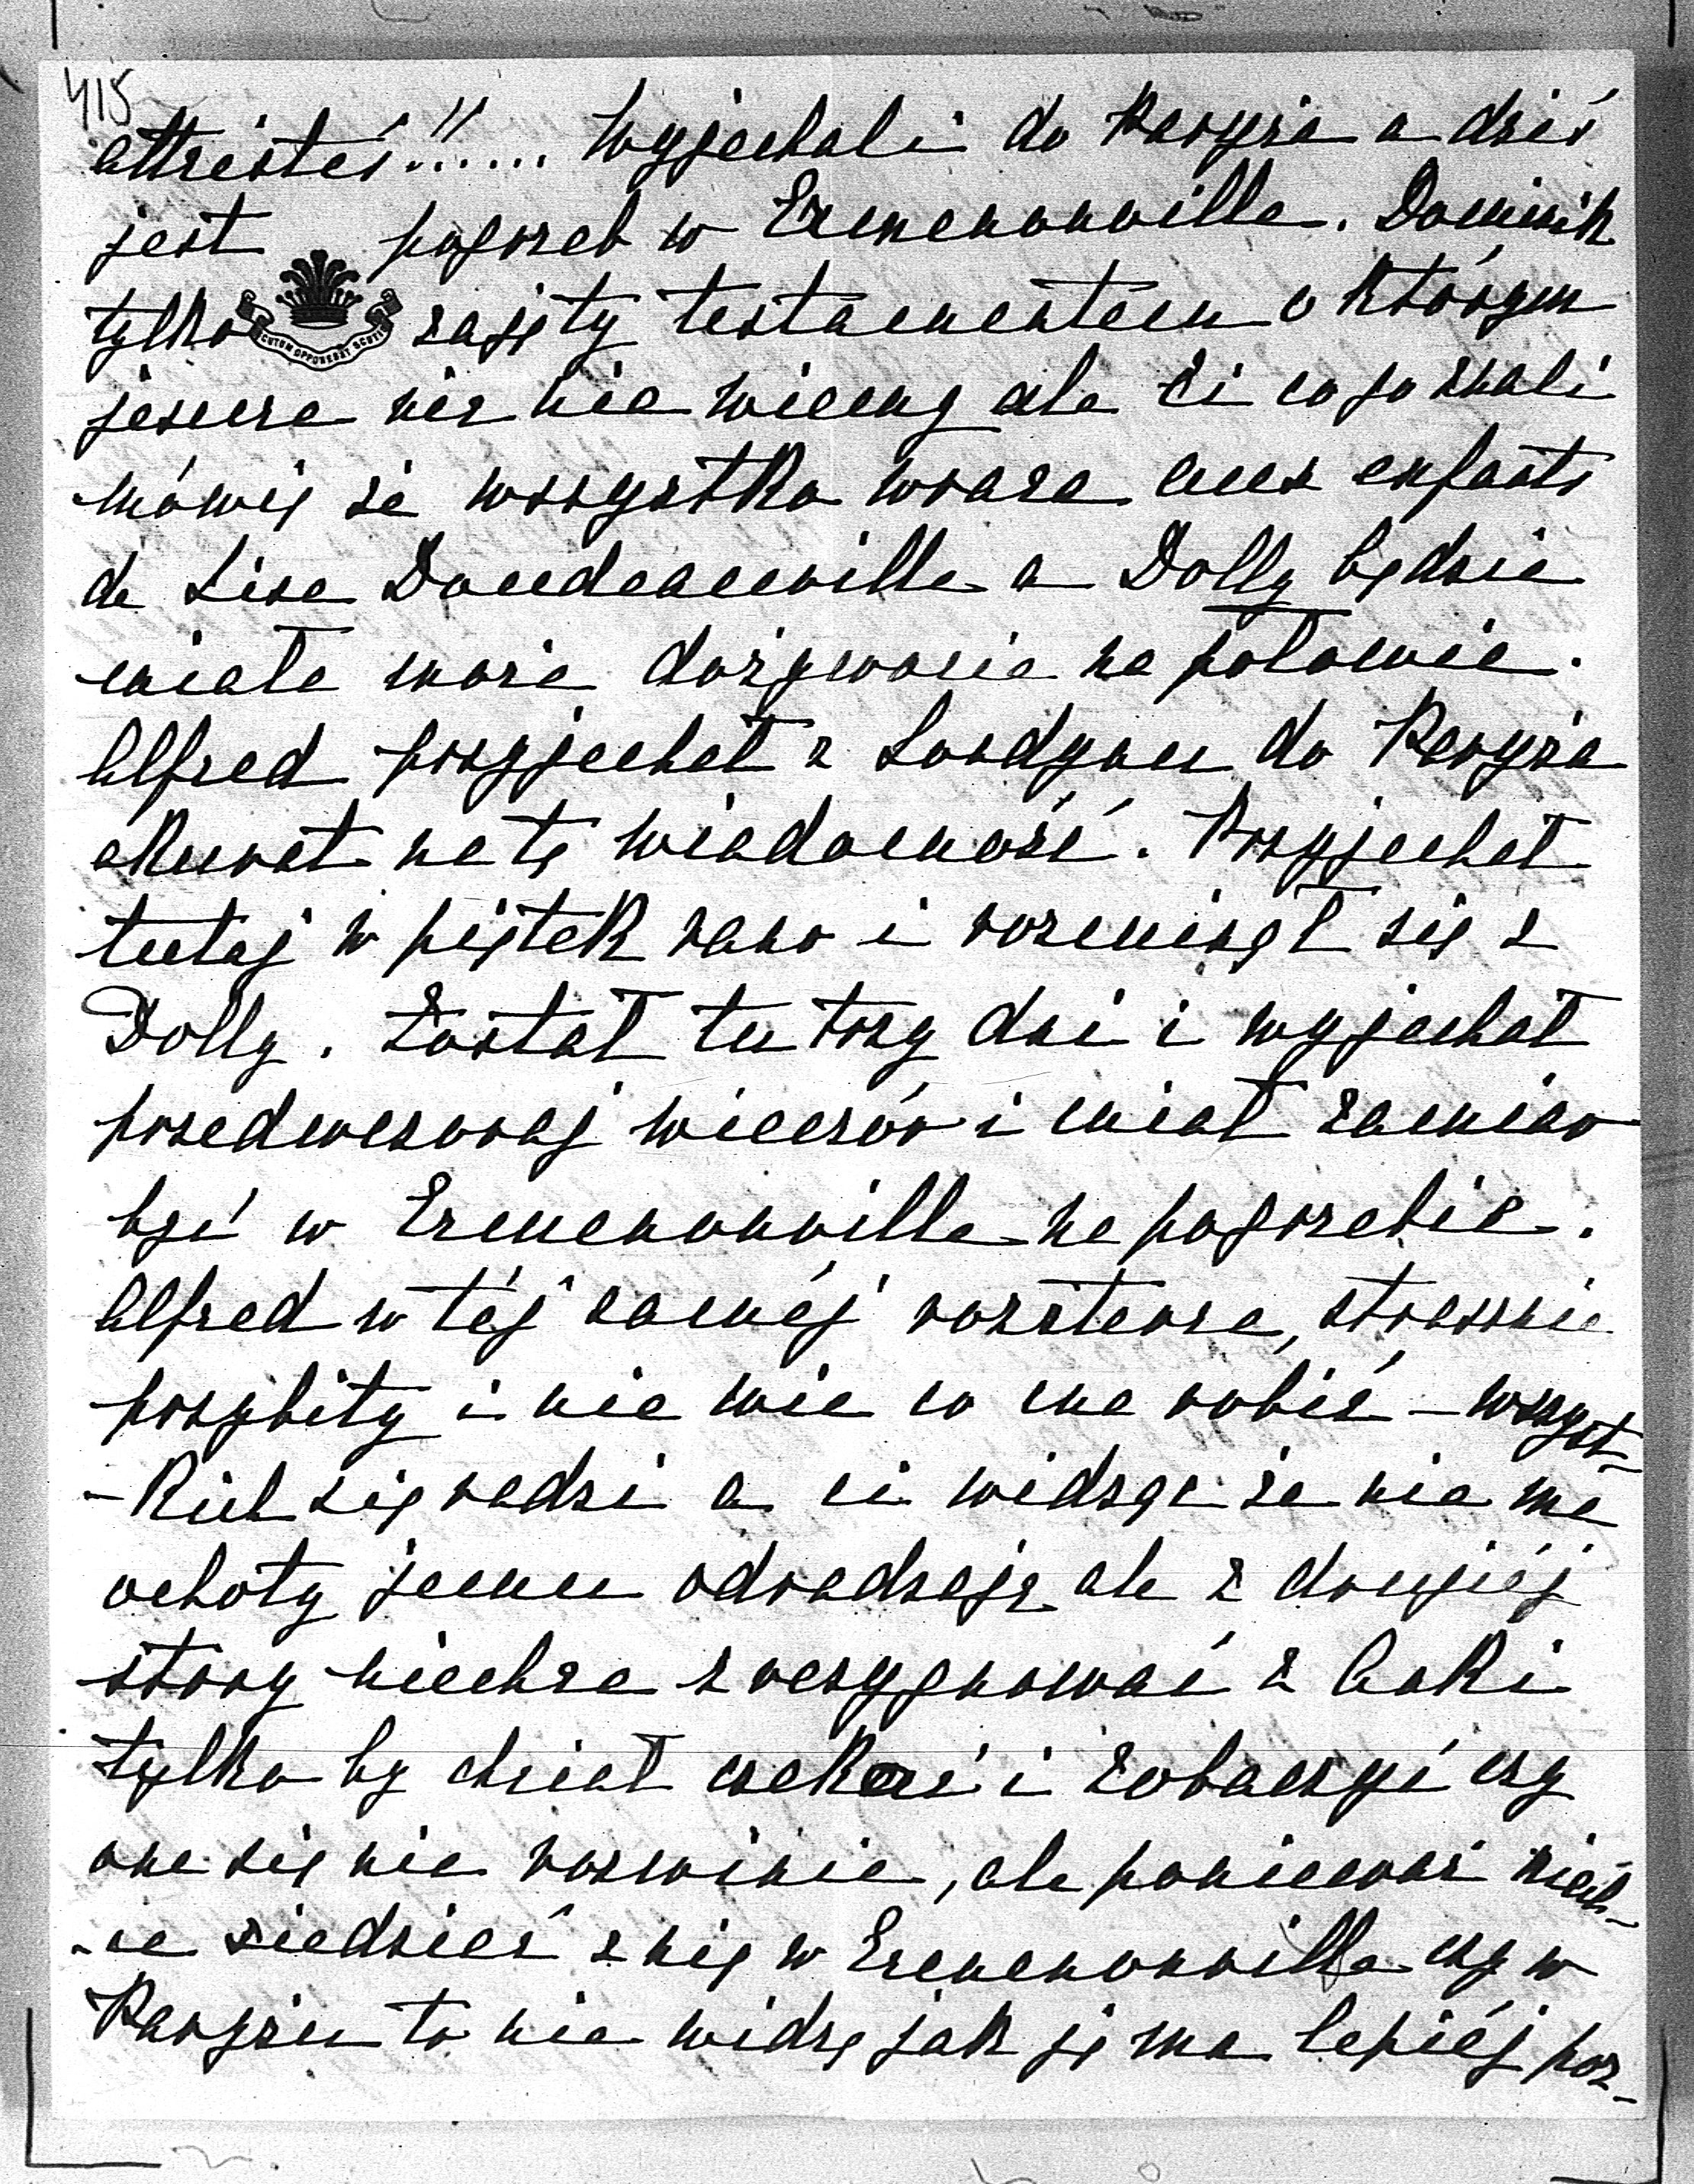 415
attristés!!..... Wyjechali do Paryża a dziś
jest pogrzeb w Ermenonville. Dominik
tylko zajęty testamentem o którym
SCUTUM OPPONEBAT SCUTIS
jeszcze nic nie wiemy ale ci co go znali
mówią że wszystko wraca aux enfants
de Lise Doudeauville a Dolly będzie
miała może dożywocie na połowie.
Alfred przyjechał z Londynu do Paryża
akurat na tę wiadomość. Przyjechał
tutaj w piątek rano i rozminął się z
Dolly. Został tu trzy dni i wyjechał
przedwczoraj wieczór i miał zamiar
być w Ermenonville na pogrzebie.
Alfred w téj saméj rozsterce, strasznie
przybity i nie wie co ma robić – wszyst-
-kich się radzi a ci widząc że nie ma
ochoty jemu odradzają ale z drugiéj
strony niechce zrezygnować z Anki
tylko by chciał czekać i zobaczyć czy
ona się nie rozwinie, ale ponieważ niech-
-ce siedzieć z nią w Ermenonville czy w
Paryżu to nie widzę jak ją ma lepiéj poz-